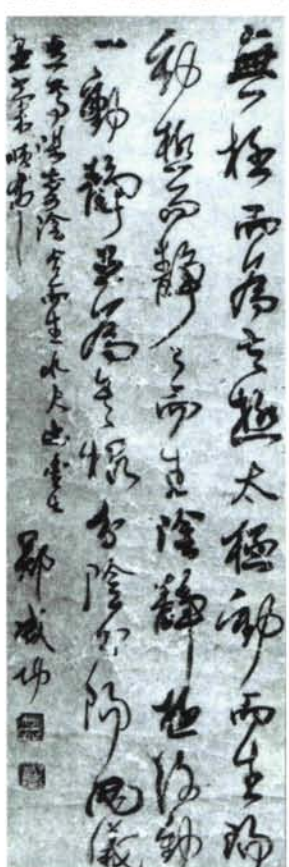 無極而為太極太極動而生陽
動極而靜々而生陰靜極復動
一動靜互為其根分陰分陽兩儀
立焉陽變陰合而生水火木金土
五氣順布
鄭成功